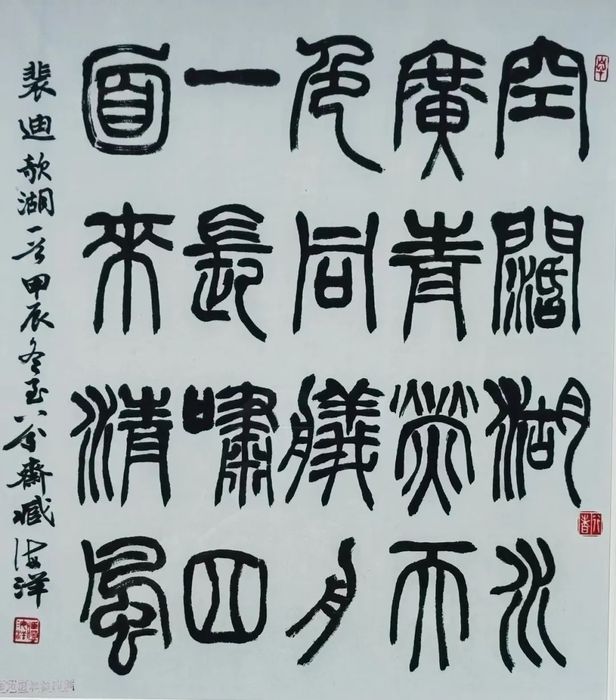 空闊湖水
廣青熒天
色同艤舟
一長嘯四
面來清風
裴迪欹湖一首甲辰冬至八分齋臧海洋